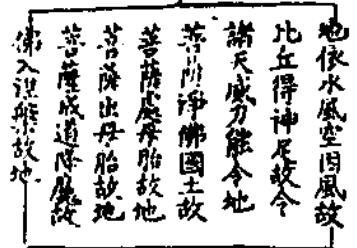 地依水風空因風故
比丘得神足故令
諸天威力能令地
菩薩淨佛國土故
菩薩處母胎故地
菩薩出母胎故地
菩薩成道降魔故
佛入涅槃故地